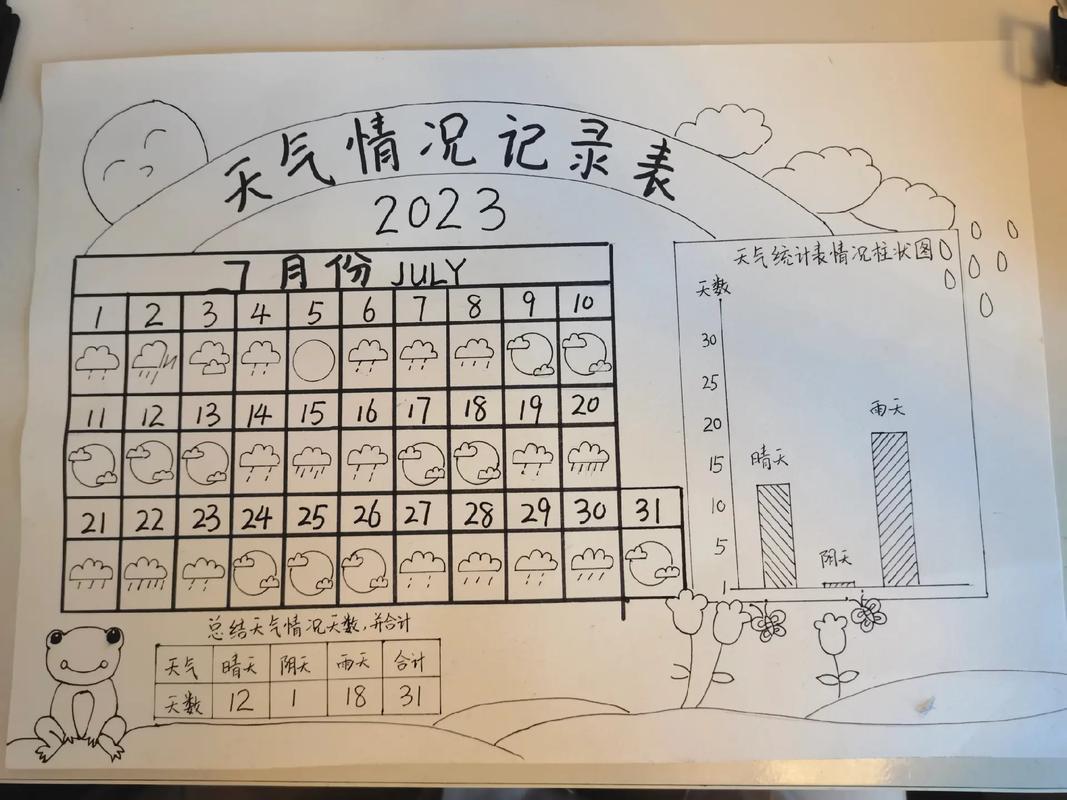 天气情况记录表
2023
7月份 JULY
1 2 3 4 5 6 7 8 9 10
11 12 13 14 15 16 17 18 19 20
21 22 23 24 25 26 27 28 29 30 31
天气统计表情况柱状图
天数
30
25
20
15
10
5
1
晴天
阴天
雨天
总结天气情况天数,并合计
天气 晴天 阴天 雨天 合计
天数 12 1 18 31